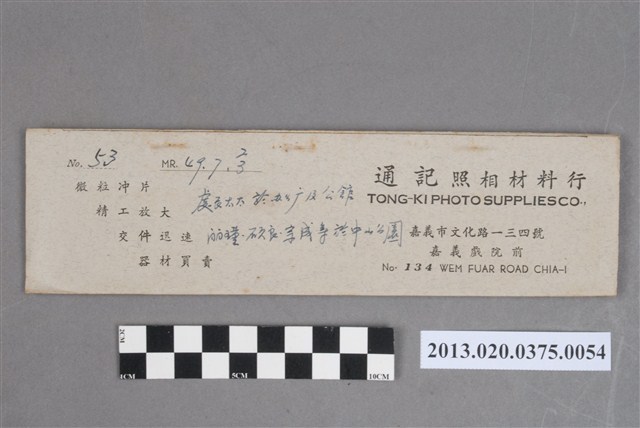 No. 53
MR. 49.7.2/3
微粒冲片
精工放大
交件迅速
器材買賣
太太於
於中山公園
通記照相材料行
TONG-KI PHOTO SUPPLIES CO.,
嘉義市文化路一三四號
嘉義戲院前
No. 134 WEM FUAR ROAD CHIA-I
2CM
1CM
5CM
10CM
2013.020.0375.0054